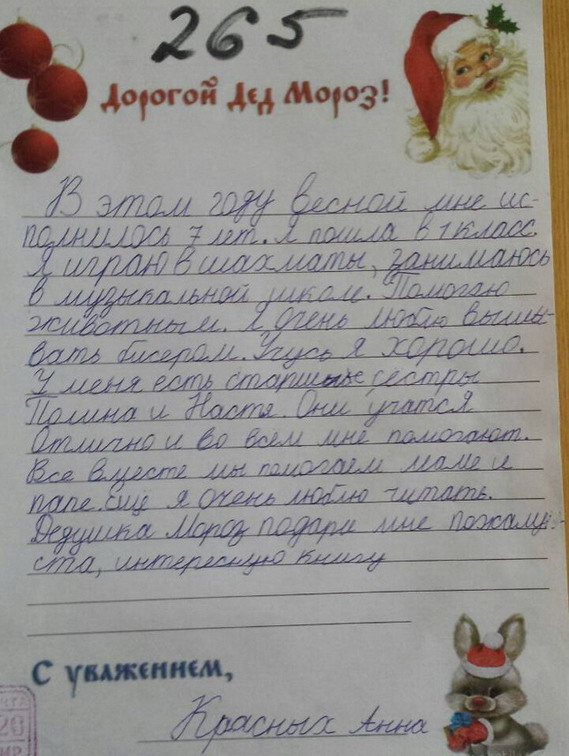 265
Дорогой Дед Мороз!
В этом году весной мне ис-
полнилось 7 лет. Я пошла в 1 класс.
Я играю в шахматы, занимаюсь
в музыкальной школ. Помогаю
животным. Я очень люблю выши-
вать бисером. Учусь я хорошо.
У меня есть старшые сёстры
Полина и Настя. Они учатся
отлично и во всём мне помогают.
Все вместе мы помогаем маме и
папе. Ещё я очень люблю читать.
Дедушка Мороз подари мне пожалуй-
ста, интересную книгу
С уважением,
Красных Анна
20